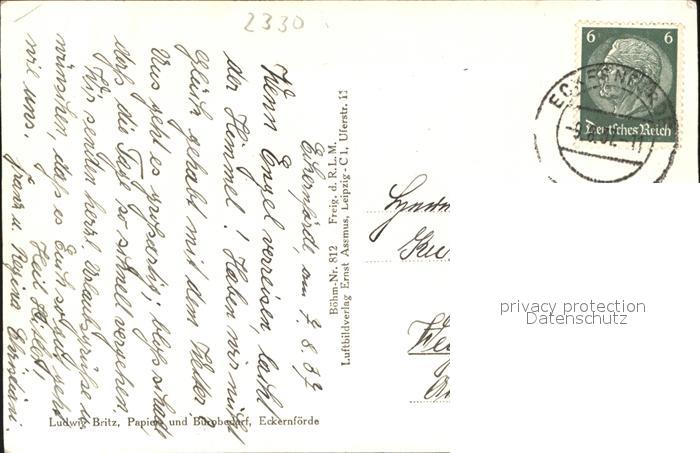 2330
Eckernförde, am 7.8.37
Wenn Engel verreisen, lacht
der Himmel! Haben wir nicht
Glück gehabt mit dem Wetter?
Uns geht es großartig; bloß schade,
daß die Tage so schnell vergehen.
Wir senden herzl. Urlaubsgrüße u.
wünschen, daß es Euch so gut geht
wie uns. Heil Hitler!
Franz u. Regina
Böhm-Nr. 812 Freig. d. R. L. M.
Luftbildverlag Ernst Assmus, Leipzig-C 1, Uferstr. 11
Ludwig Britz, Papier- und Bürobedarf, Eckernförde
6 6
Deutsches Reich
ECKERNFÖRDE
privacy protection
Datenschutz